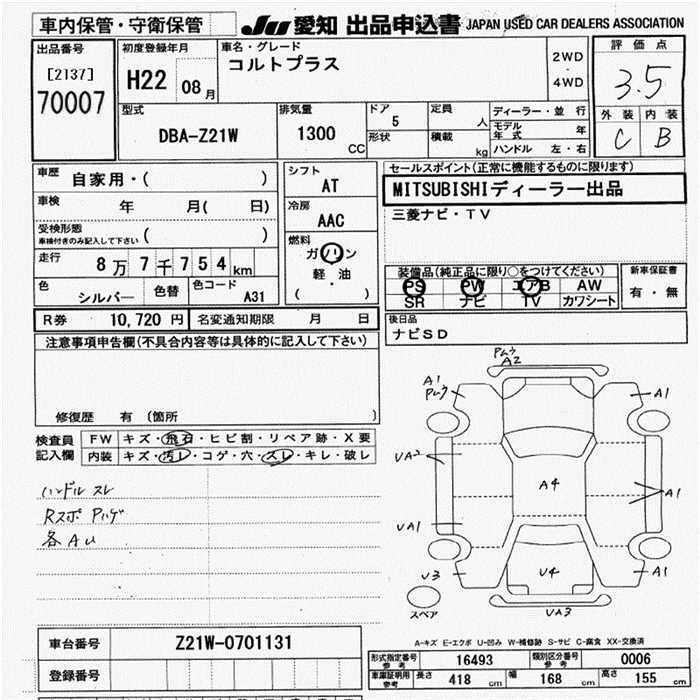 車内保管・守衛保管
JU 愛知 出品申込書 JAPAN USED CAR DEALERS ASSOCIATION
出品番号
[2137]
70007
初度登録年月
H22 08月
車名・グレード
コルトプラス
2WD
・
4WD
評価点
3.5
外装 内装
C B
型式
DBA-Z21W
排気量
1300
CC
ドア
5
形状
定員
人
積載
kg
ディーラー・並行
モデル年式 年
ハンドル 左・右
車歴
自家用・( )
車検
年 月( 日)
受検形態
車検付きのみ記入して下さい ( )
走行
8万7千754km
色
シルバー
色替
色コード
A31
シフト
AT
冷房
AAC
燃料
ガソリン
軽・油
( )
セールスポイント(正常に機能するものに限ります)
MITSUBISHIディーラー出品
三菱ナビ・TV
装備品(純正品に限り○をつけてください)
PS PW エアB AW
SR ナビ TV カワシート
新車保証書
有・無
R券 10,720 円
名変通知期限 月 日
後日品
ナビSD
注意事項申告欄(不具合内容等は具体的に記入して下さい)
修復歴 有 〔箇所 〕
検査員
記入欄
FW キズ・飛石・ヒビ割・リペア跡・X要
内装 キズ・汚レ・コゲ・穴・スレ・キレ・破レ
ハンドル スレ
Rスポ Pハゲ
各AU
Pムラ
A2
A1
Pムラ
A1
UA2
A4
A1
UA1
U3
U4
A1
スペア
UA3
A-キズ E-エクボ U-凹み W-補修跡 S-サビ C-腐食 XX-交換済
車台番号
Z21W-0701131
登録番号
形式指定番号
参考
16493
類別区分番号
参考
0006
車庫証明用
参考
長さ
418 cm
幅
168 cm
高さ
155 cm